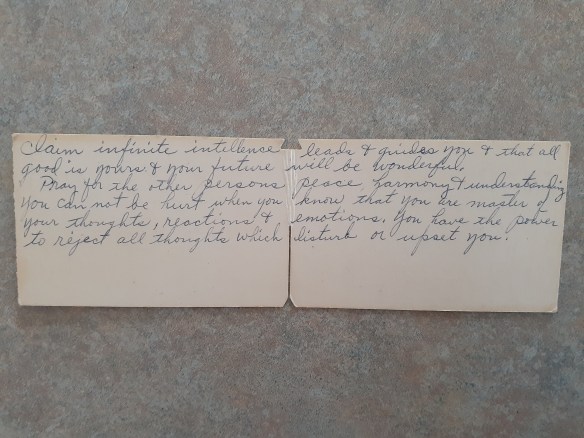 Claim infinite intellence leads & guides you & that all
good is yours & your future will be wonderful.
Pray for the other persons peace, harmony & understanding
You can not be hurt when you know that you are master of
your thoughts, reactions & emotions. You have the power
to reject all thoughts which disturb or upset you.